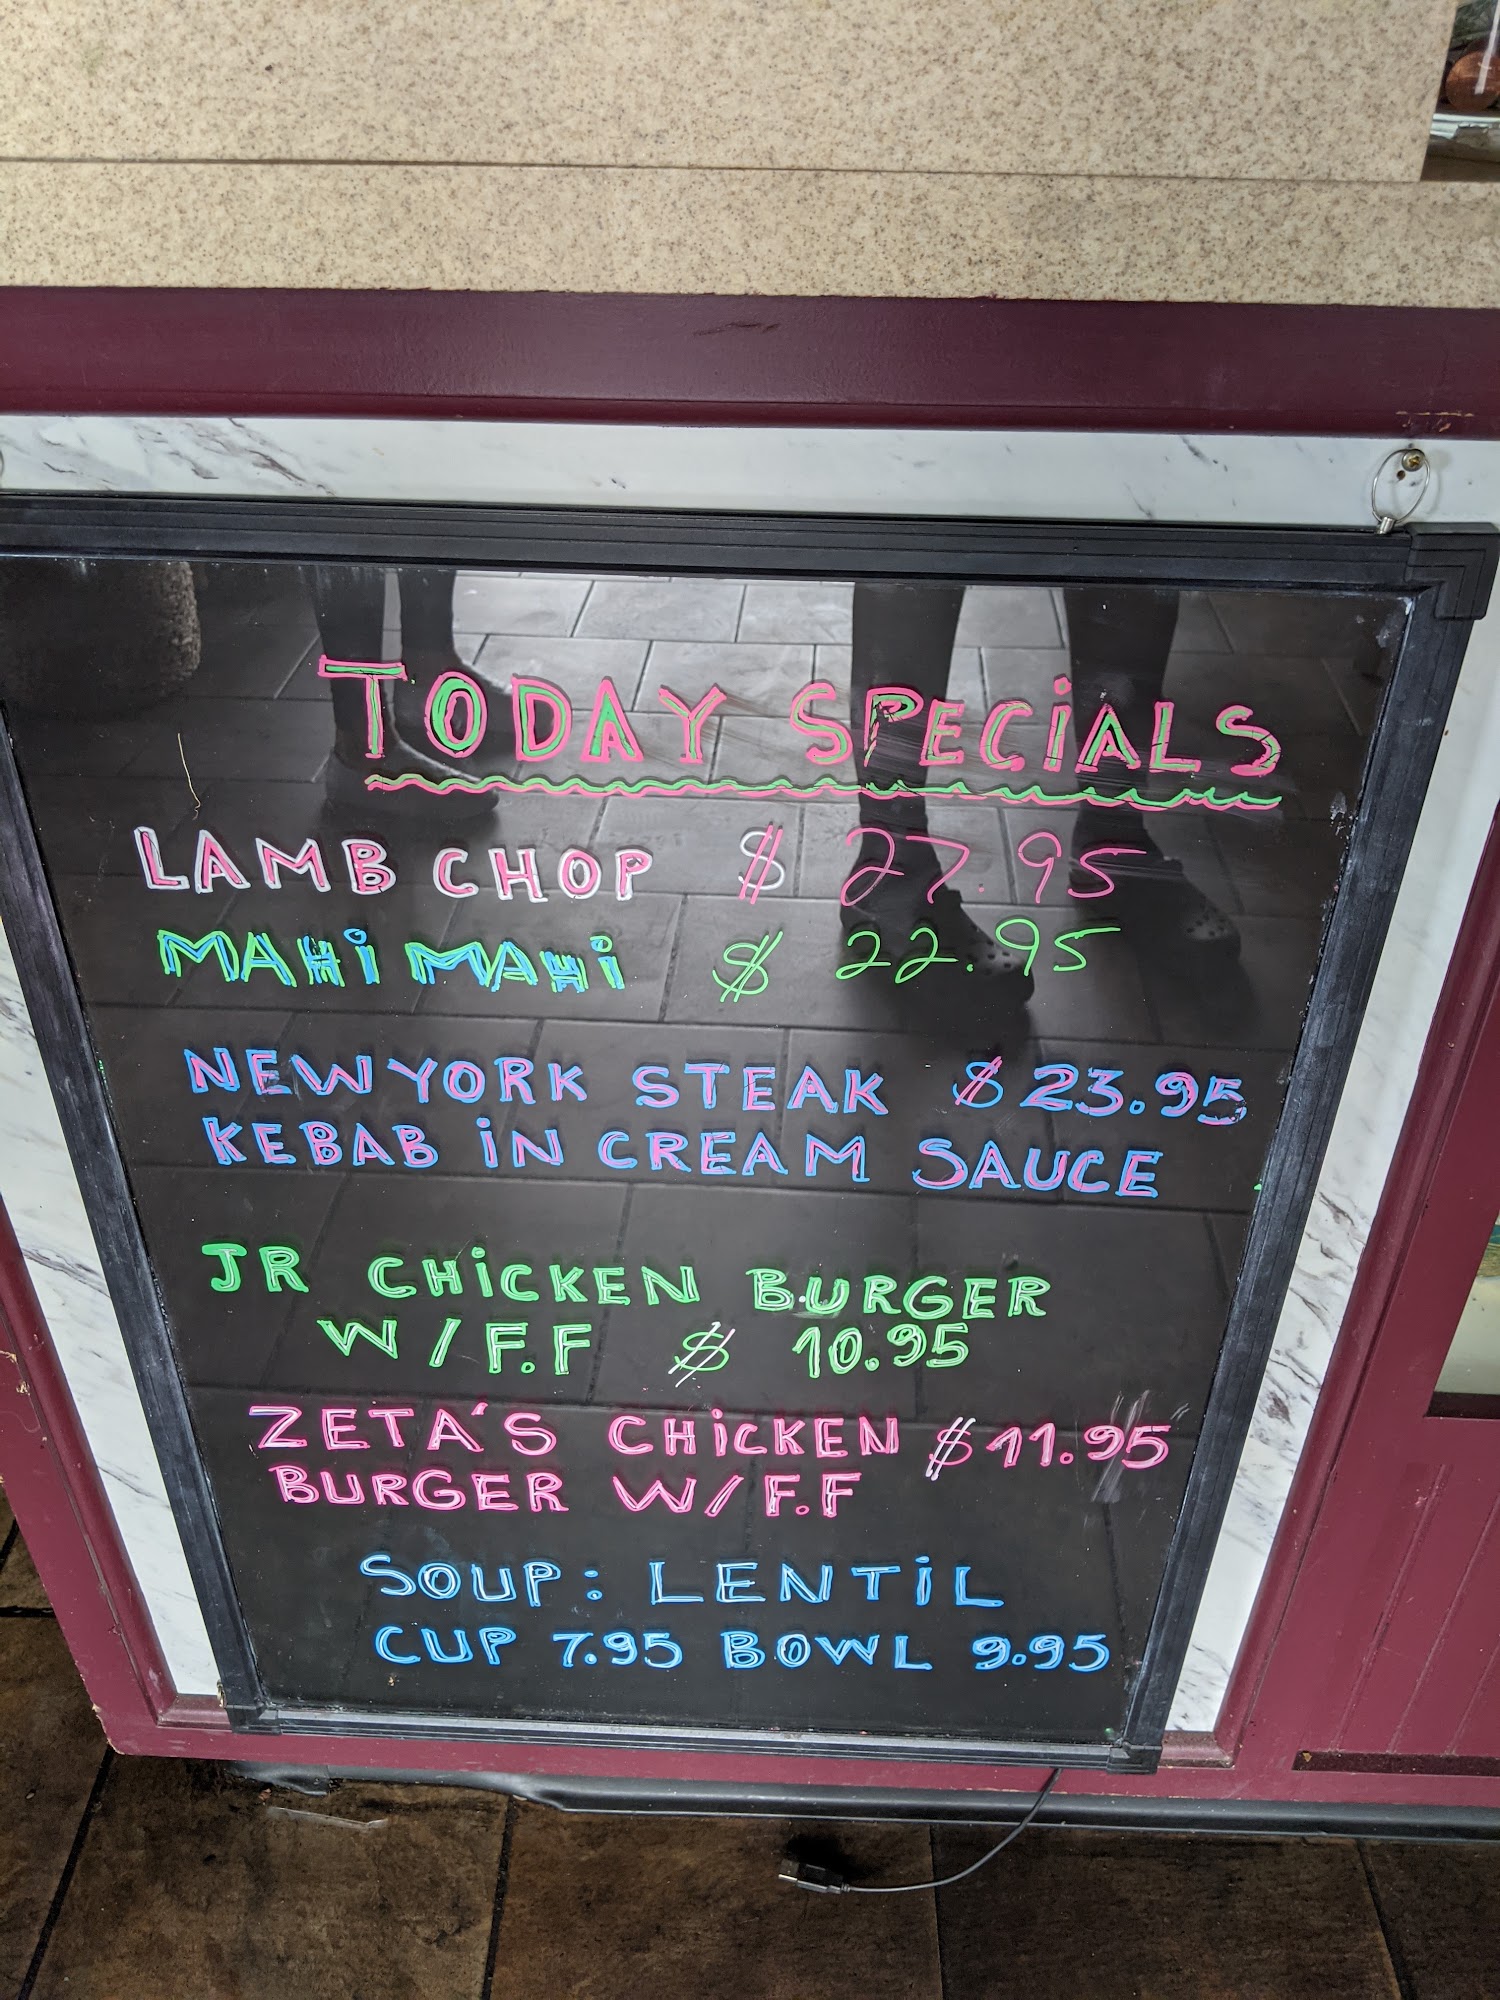 TODAY SPECiALS
LAMB CHOP $ 27.95
MAHi MAHi $ 22.95
NEWYORK STEAK $23.95
KEBAB iN CREAM SAUCE
JR CHiCKEN BURGER
W/F.F $ 10.95
ZETA'S CHiCKEN $11.95
BURGER W/F.F
SOUP: LENTiL
CUP 7.95 BOWL 9.95